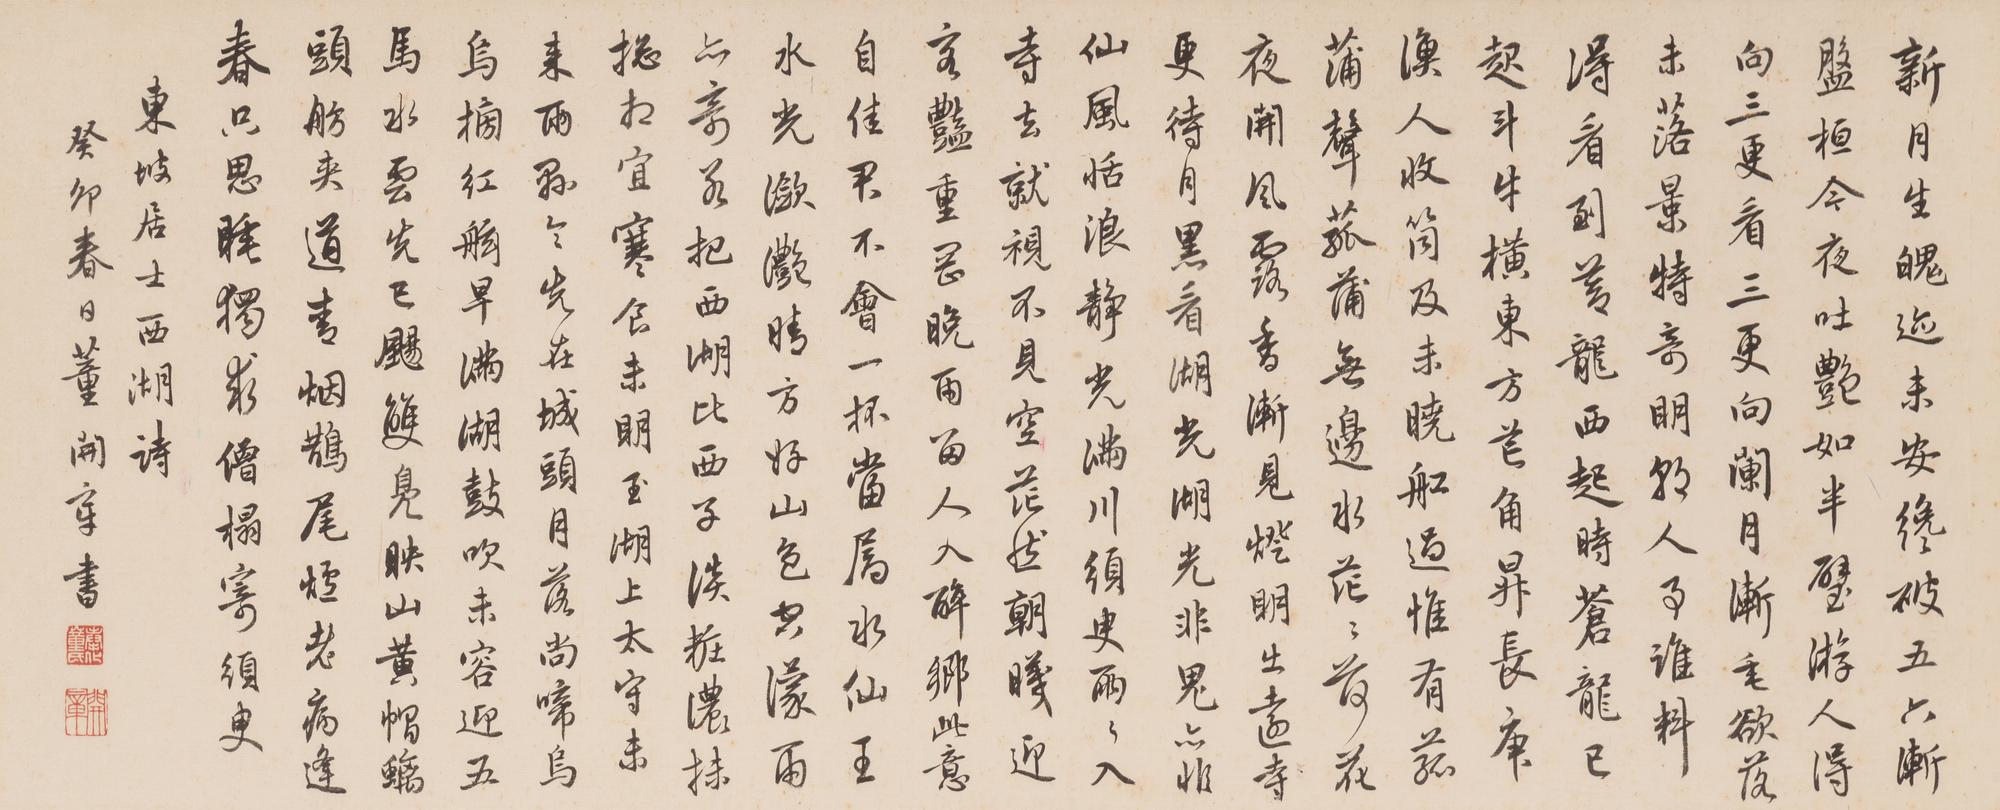 新月生魄迹未安纔破五六漸
盤桓今夜吐艷如半璧游人得
向三更看三更向闌月漸垂欲落
未落景特奇明朝人事誰料
得看到蒼龍西起時蒼龍已
起斗牛橫東方芒角昇長庚
漁人收筒及未曉船過惟有菰
蒲聲菰蒲無邊水茫〻荷花
夜開風露香漸見燈明出遠寺
更待月黑看湖光湖光非鬼亦非
仙風恬浪靜光滿川須臾兩〻入
寺去就視不見空茫然朝曦迎
客豔重岡晚雨留人入醉鄉此意
自佳君不會一杯當屬水仙王
水光瀲灩晴方好山色空濛雨
亦奇若把西湖比西子淡粧濃抹
揔相宜寒食未明至湖上太守未
来兩縣令先在城頭月落尚啼烏
烏榜紅舷早滿湖鼓吹未容迎五
馬水雲先已颺雙鳧映山黃帽螭
頭舫夾道青烟鵲尾爐老病逢
春只思睡獨求僧榻寄須臾
東坡居士西湖詩
癸卯春日董開章書
開章